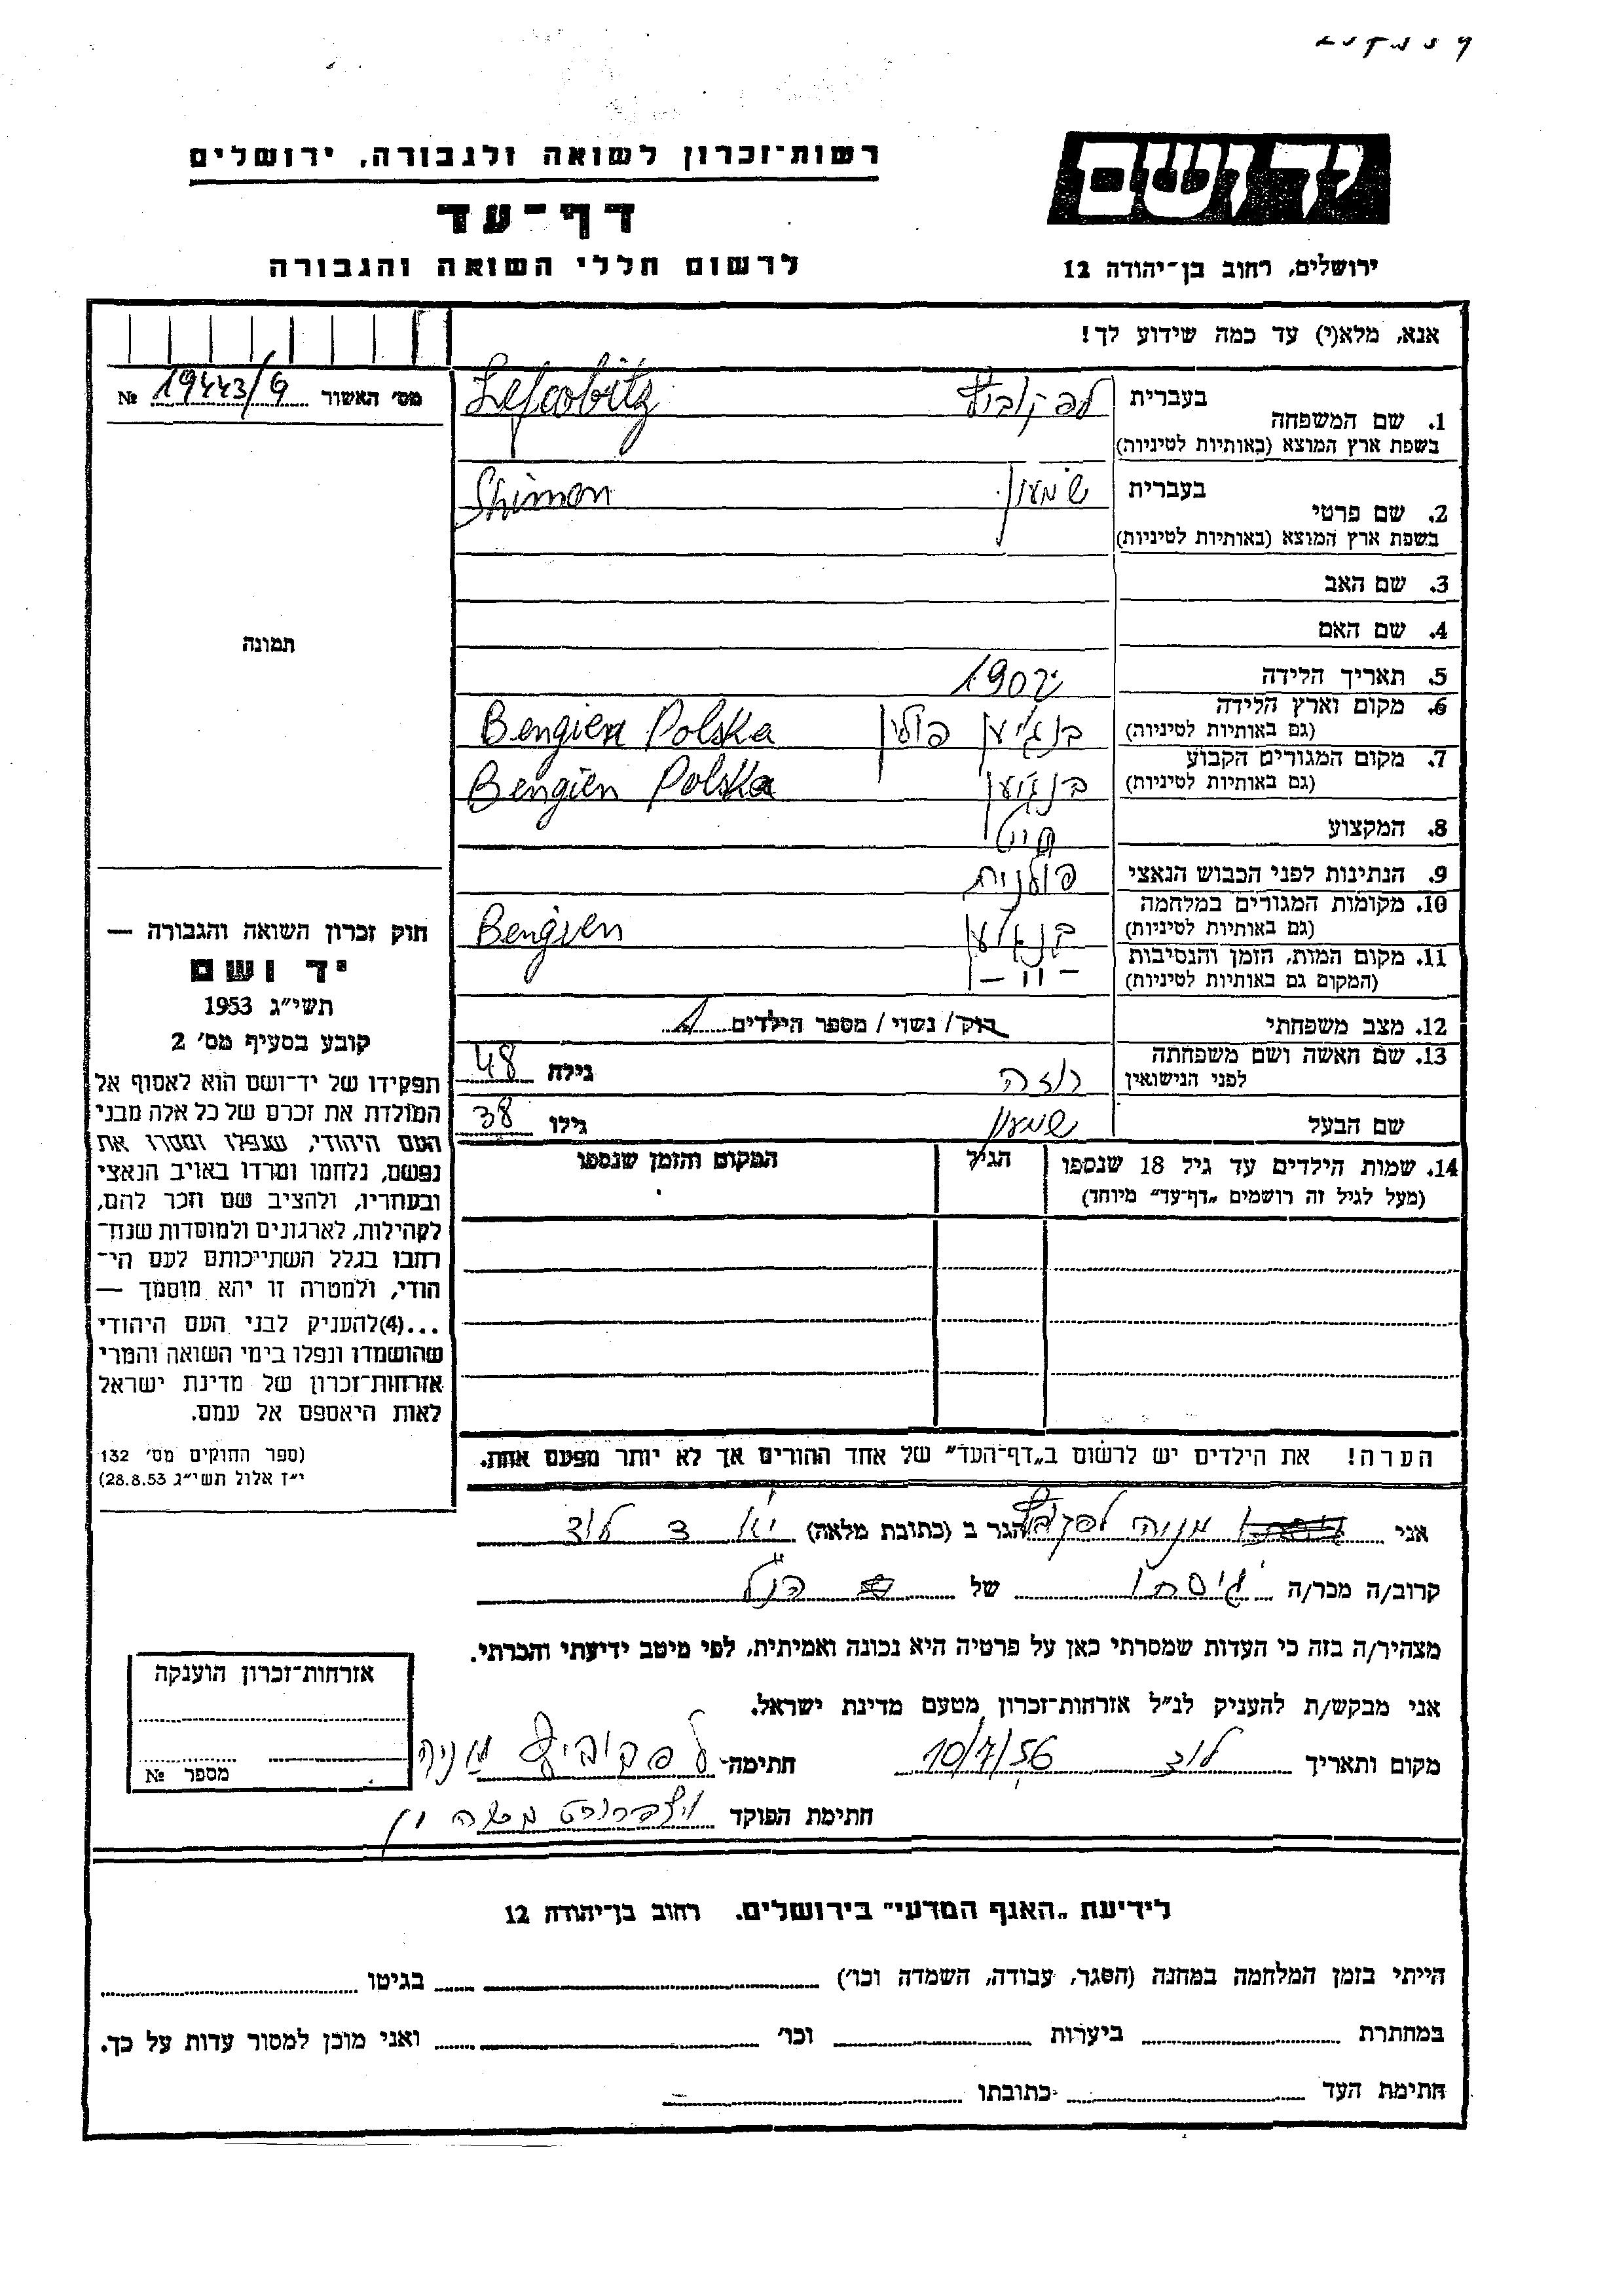 רשות־זכרון לשואה ולגבורה, ירושלים
דף־עד
לרשום חללי השואה והגבורה
יד ושם
ירושלים, רחוב בן־יהודה 12
אנא, מלא(י) עד כמה שידוע לך!
מס׳ האשור 19443/G №
תמונה
1. שם המשפחה
בעברית לפקוביץ
בשפת ארץ המוצא (באותיות לטיניות) Lefcobitz
2. שם פרטי
בעברית שמעון
בשפת ארץ המוצא (באותיות לטיניות) Shimon
3. שם האב
4. שם האם
5. תאריך הלידה 1902
6. מקום וארץ הלידה
(גם באותיות לטיניות) בנגיען פולין Bengien Polska
7. מקום המגורים הקבוע
(גם באותיות לטיניות) בנגיען Bengien Polska
8. המקצוע חייט
9. הנתינות לפני הכבוש הנאצי פולנית
10. מקומות המגורים במלחמה
(גם באותיות לטיניות) בנגיען Bengien
11. מקום המות, הזמן והנסיבות
(המקום גם באותיות לטיניות) -״-
12. מצב משפחתי רוק / נשוי / מספר הילדים 1
13. שם האשה ושם משפחתה
לפני הנישואין רוזה גילה 48
שם הבעל שמעון גילו 38
14. שמות הילדים עד גיל 18 שנספו
(מעל לגיל זה רושמים „דף־עד" מיוחד)
הגיל
המקום והזמן שנספו
חוק זכרון השואה והגבורה —
יד ושם
תשי״ג 1953
קובע בסעיף מס׳ 2
תפקידו של יד־ושם הוא לאסוף אל
המולדת את זכרם של כל אלה מבני
העם היהודי, שנפלו ומסרו את
נפשם, נלחמו ומרדו באויב הנאצי
ובעוזריו, ולהציב שם וזכר להם,
לקהילות, לארגונים ולמוסדות שנח־
רבו בגלל השתייכותם לעם הי־
הודי, ולמטרה זו יהא מוסמך —
...(4)להעניק לבני העם היהודי
שהושמדו ונפלו בימי השואה והמרי
אזרחות־זכרון של מדינת ישראל
לאות היאספם אל עמם.
(ספר החוקים מס׳ 132
י״ז אלול תשי״ג 28.8.53)
הערה! את הילדים יש לרשום ב„דף־העד" של אחד ההורים אך לא יותר מפעם אחת.
אני מניה לפקוביץ הגר ב (כתובת מלאה) לוד
קרוב/ה מכר/ה גיסתו של הנ״ל
מצהיר/ה בזה כי העדות שמסרתי כאן על פרטיה היא נכונה ואמיתית, לפי מיטב ידיעתי והכרתי.
אני מבקש/ת להעניק לנ״ל אזרחות־זכרון מטעם מדינת ישראל.
מקום ותאריך לוד 10/7/56 חתימה לפקוביץ מניה
חתימת הפוקד
אזרחות־זכרון הוענקה
מספר №
לידיעת „האגף המדעי" בירושלים. רחוב בן־יהודה 12
הייתי בזמן המלחמה במחנה (הסגר, עבודה, השמדה וכו׳) בגיטו
במחתרת ביערות וכו׳ ואני מוכן למסור עדות על כך.
חתימת העד כתובתו